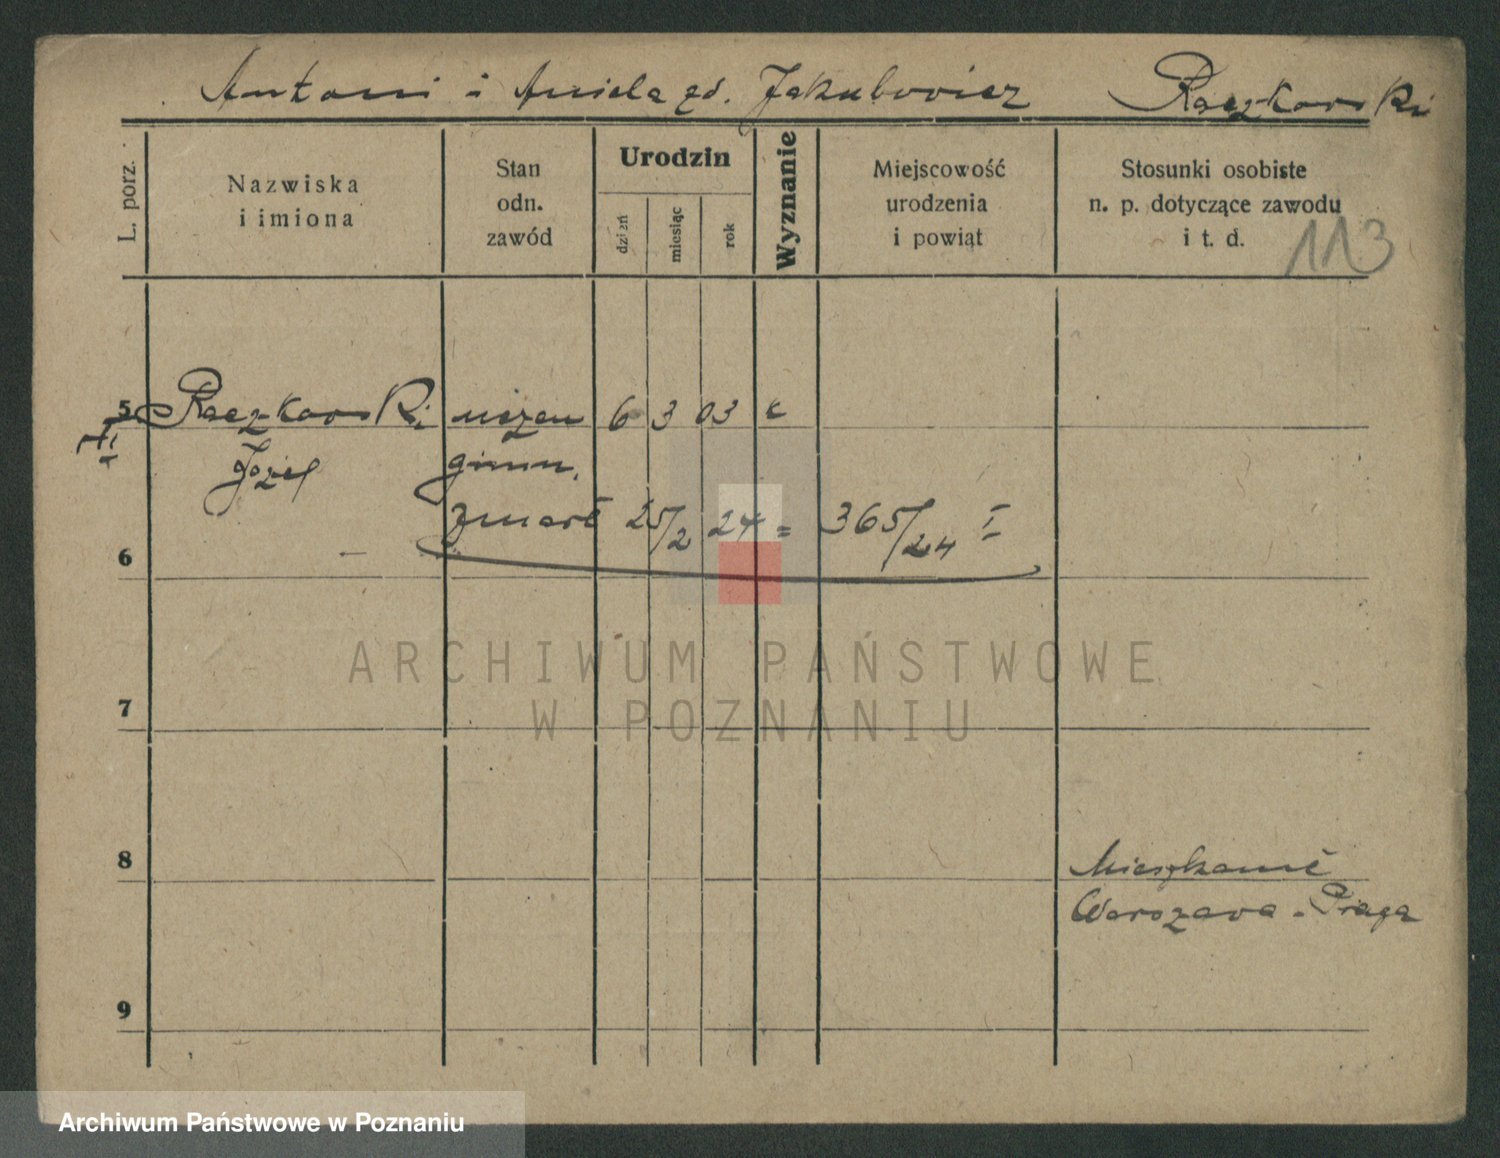 Antoni i Aniela zd. Jakubowicz Raczkowski
L. porz.
Nazwiska
i imiona
Stan
odn.
zawód
Urodzin
dzień
miesiąc
rok
Wyznanie
Miejscowość
urodzenia
i powiąt
Stosunki osobiste
n. p. dotyczące zawodu
i t. d.
113
5 Raczkowski uczeń 6 3 03 k
Józef gimn.
zmarł 25/2 24 = 365/24 I
6
ARCHIWUM PAŃSTWOWE
W POZNANIU
7
8
Mieszkanie
Warszawa - Praga
9
Archiwum Państwowe w Poznaniu